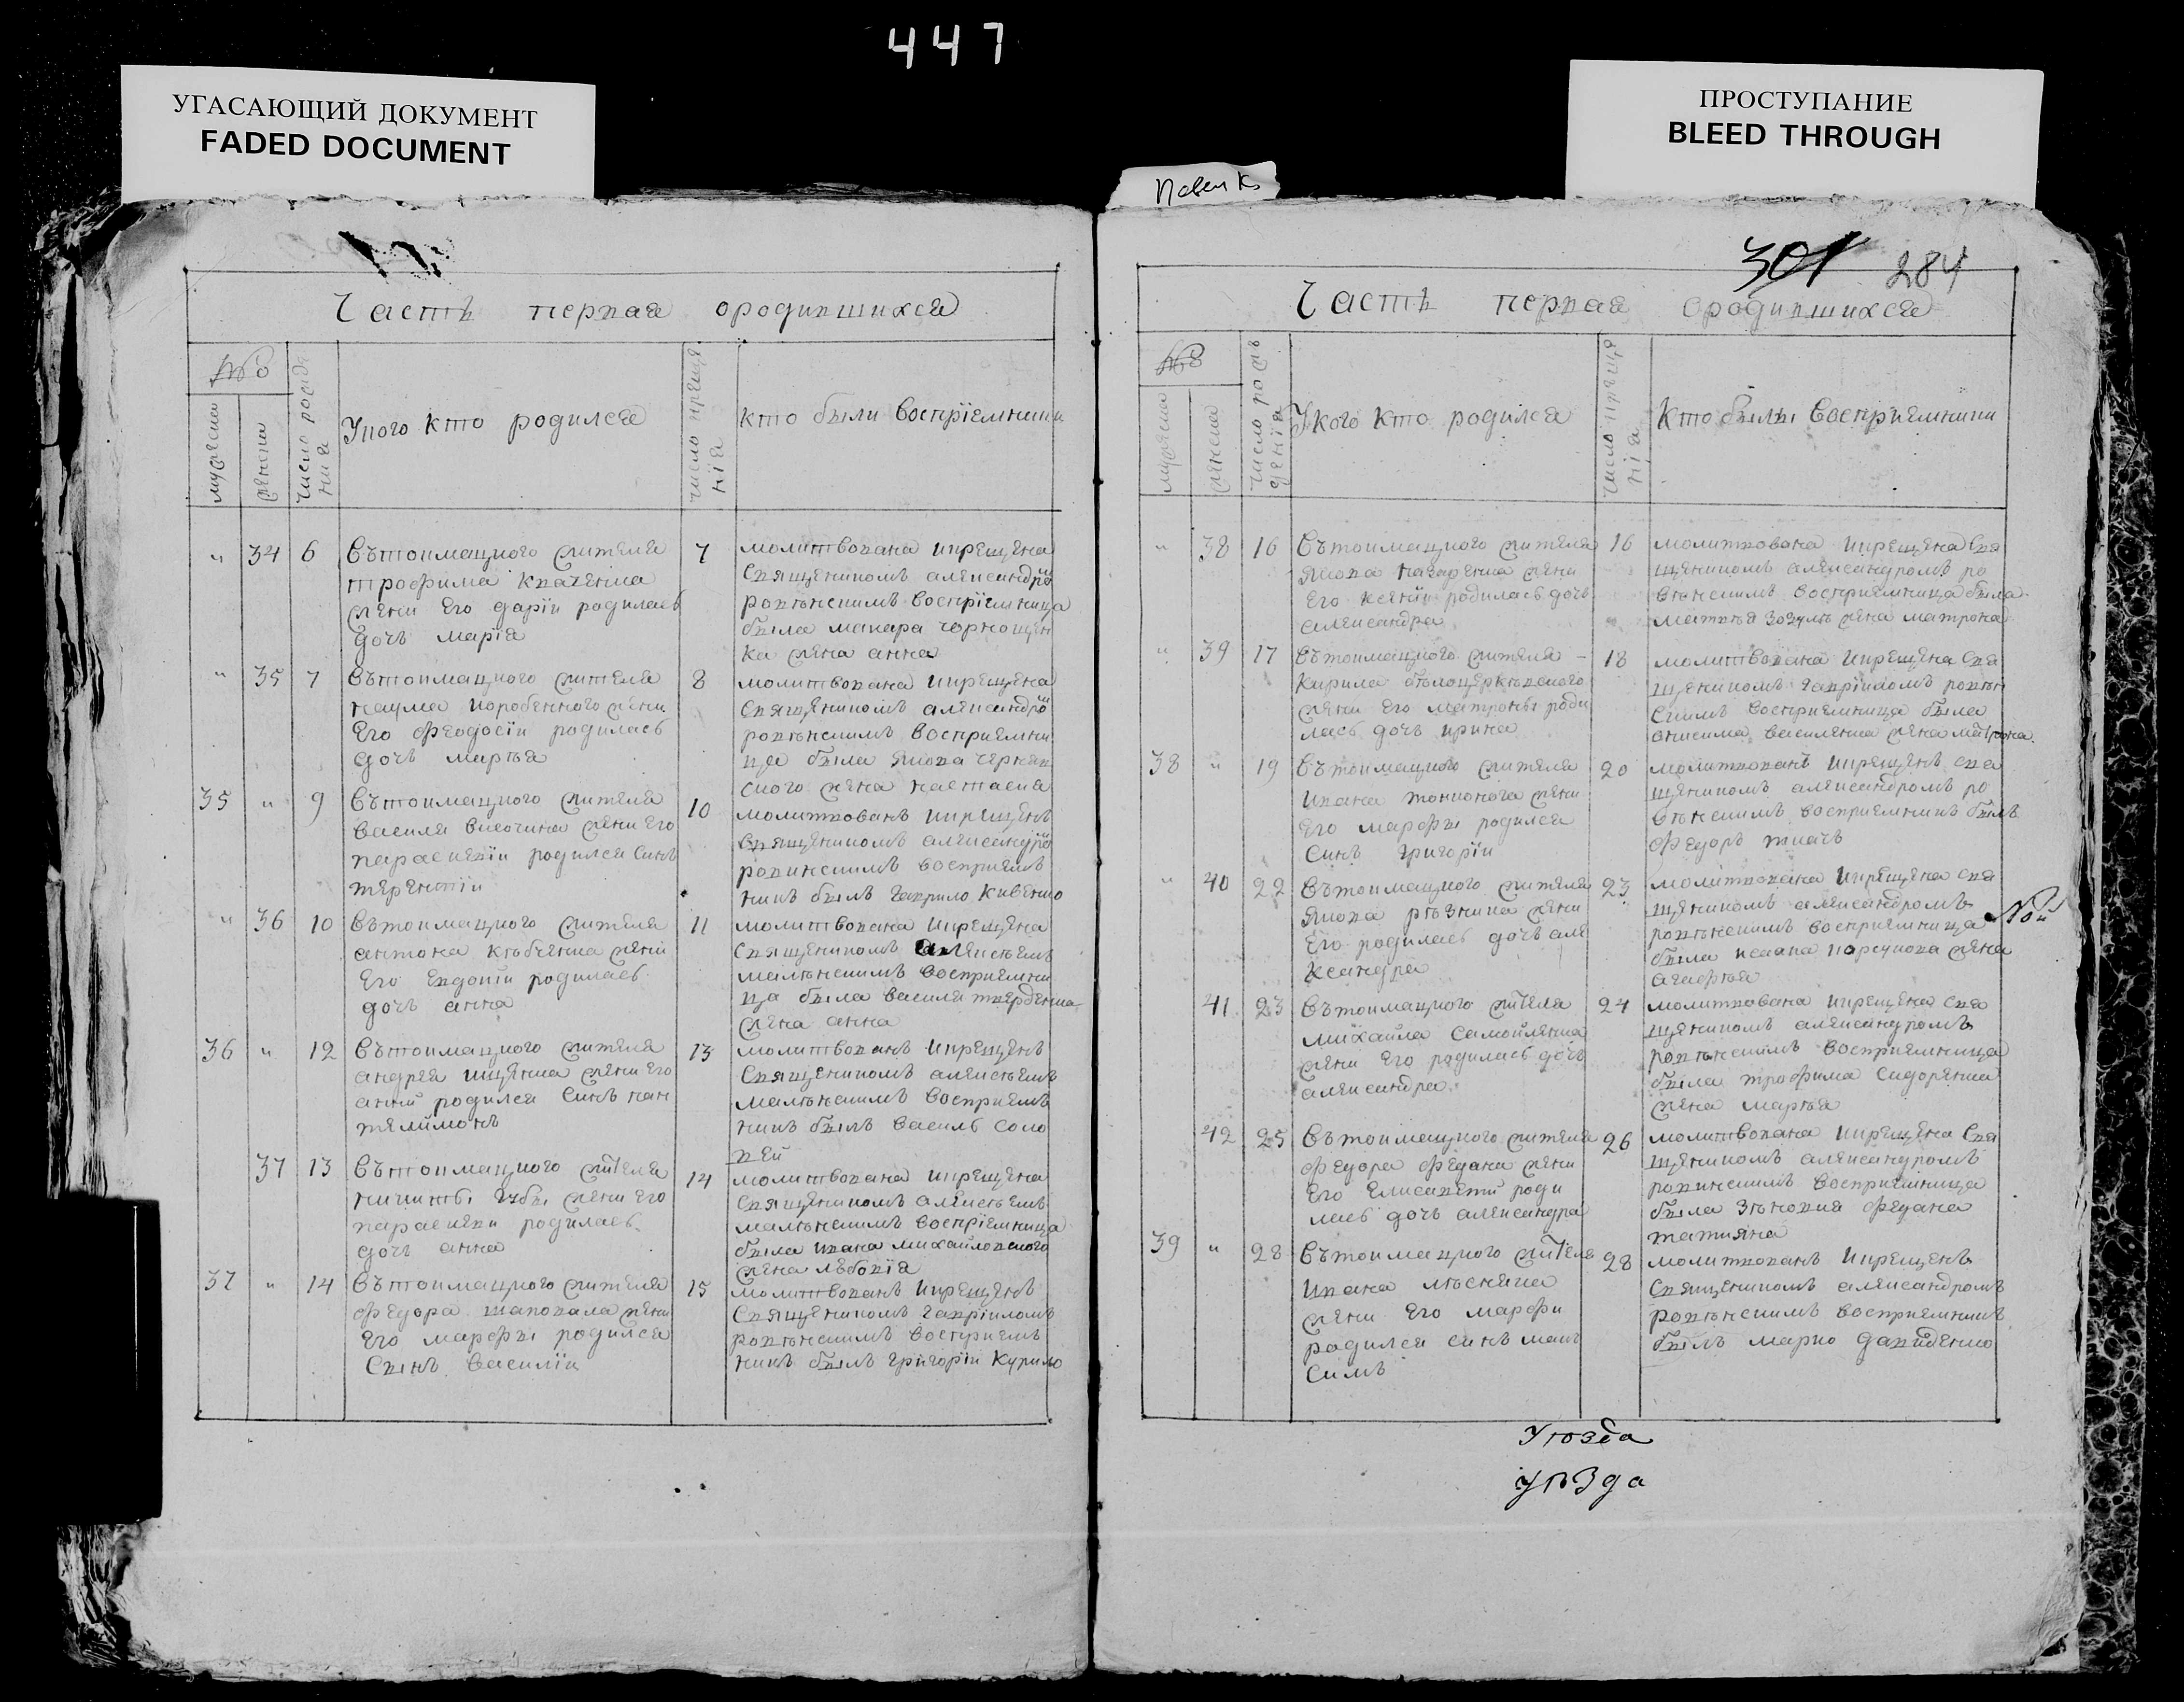 447
УГАСАЮЩИЙ ДОКУМЕНТ
FADED DOCUMENT
ПРОСТУПАНИЕ
BLEED THROUGH
301 284
Часть первая ородившихся
№
мужеска
женска
число рожде
ния
У кого кто родился
число креще
нїя
кто были воспрїемники
" 34 6 Вътоимацкого жителя
трофима кравенка
жени Его дарїи родилась
дочъ марїя
7 молитвована икрещена
Священикомъ александро
ровънскимъ воспрїемница
была макара чорнощен
ка жена анна
" 35 7 Вътоимацкого жителя
наума коробенкого жени
Его феодосїи родилась
дочъ марѣя
8 молитвована икрещена
Священикомъ александро
ровънскимъ восприемни
ца была якова черняв
ского жена настасия
35 " 9 Вътоимацкого жителя
василя височина жени Его
параскевїи родился синъ
терентїи
10 молитвованъ икрещенъ
Священикомъ александро
ровинскимъ восприемъ
никъ былъ гаврило Кивенко
" 36 10 Вътоимацкого жителя
антона къбченка жени
Его Евдокїи родилась
дочъ анна
11 молитвована икрещена
Священикомъ алексѣемъ
малѣнскимъ восприемни
ца была василя твердѣнка
жена анна
36 " 12 Вътоимацкого жителя
андрея ищенка жени Его
анни родился синъ пан
телимонъ
13 молитвованъ икрещенъ
Священикомъ алексѣемъ
малѣнскимъ восприемъ
никъ былъ василь соло
вей
37 13 Вътоимацкого жителя
никиты губы жени Его
параскеви родилась
дочъ анна
14 молитвована икрещена
Священикомъ алексѣемъ
малѣнскимъ воспрїемница
была ивана михайловского
жена любовїя
37 " 14 Вътоимацкого жителя
федора шаповала жени
Его марфы родился
Сынъ василїи
15 молитвованъ икрещенъ
Священикомъ гаврїиломъ
ровѣнскимъ восприемъ
никъ былъ григорїи Курило
Часть первая ородившихся
№
мужеска
женска
число рож
денїя
Укого кто родился
число креще
нїя
Кто были восприемники
" 38 16 Вътоимацкого жителя
якова назаренка жени
Его ксенїи родилась дочъ
александра
16 молитвована икрещена Свя
щеникомъ александромъ ро
вѣнскимъ восприемница была
матвѣя зозулѣ жена матрона
" 39 17 Вътоимацкого жителя
кирила бѣлоцеркѣвского
жени Его матроны роди
лась дочъ ирина
18 молитвована икрещена Свя
щеникомъ гаврїиломъ ровѣн
скимъ восприемница была
онисима василенка жена матрона
38 " 19 Вътоимацкого жителя
ивана тонконога жени
Его марфы родился
Синъ григорїи
20 молитвованъ икрещенъ свя
щеникомъ александромъ ро
вѣнскимъ восприемникъ былъ
федоръ ткачъ
" 40 22 Вътоимацкого жителя
якова рѣзника жени
Его родилась дочъ але
Ксандра
23 молитвована икрещена свя
щеникомъ александромъ
ровѣнскимъ восприемница
была исаака корсунова жена
агафѣя
41 23 Вътоимацкого жителя
михайла самойленка
жени Его родилась дочъ
александра
24 молитвована икрещена свя
щеникомъ александромъ
ровѣнскимъ восприемница
была трофима Сидоренка
жена марѣя
42 25 Вътоимацкого жителя
федора федана жени
Его Елисавети роди
лась дочъ александра
26 молитвована икрещена Свя
щеникомъ александромъ
ровинскимъ восприемница
была зѣновия федана
татияна
39 " 28 Вътоимацкого жителя
ивана лѣсняка
жени Его марфи
родился синъ мак
симъ
28 молитвованъ икрещенъ
Священикомъ александромъ
ровѣнскимъ восприемникъ
былъ марко давиденко
уѣзда